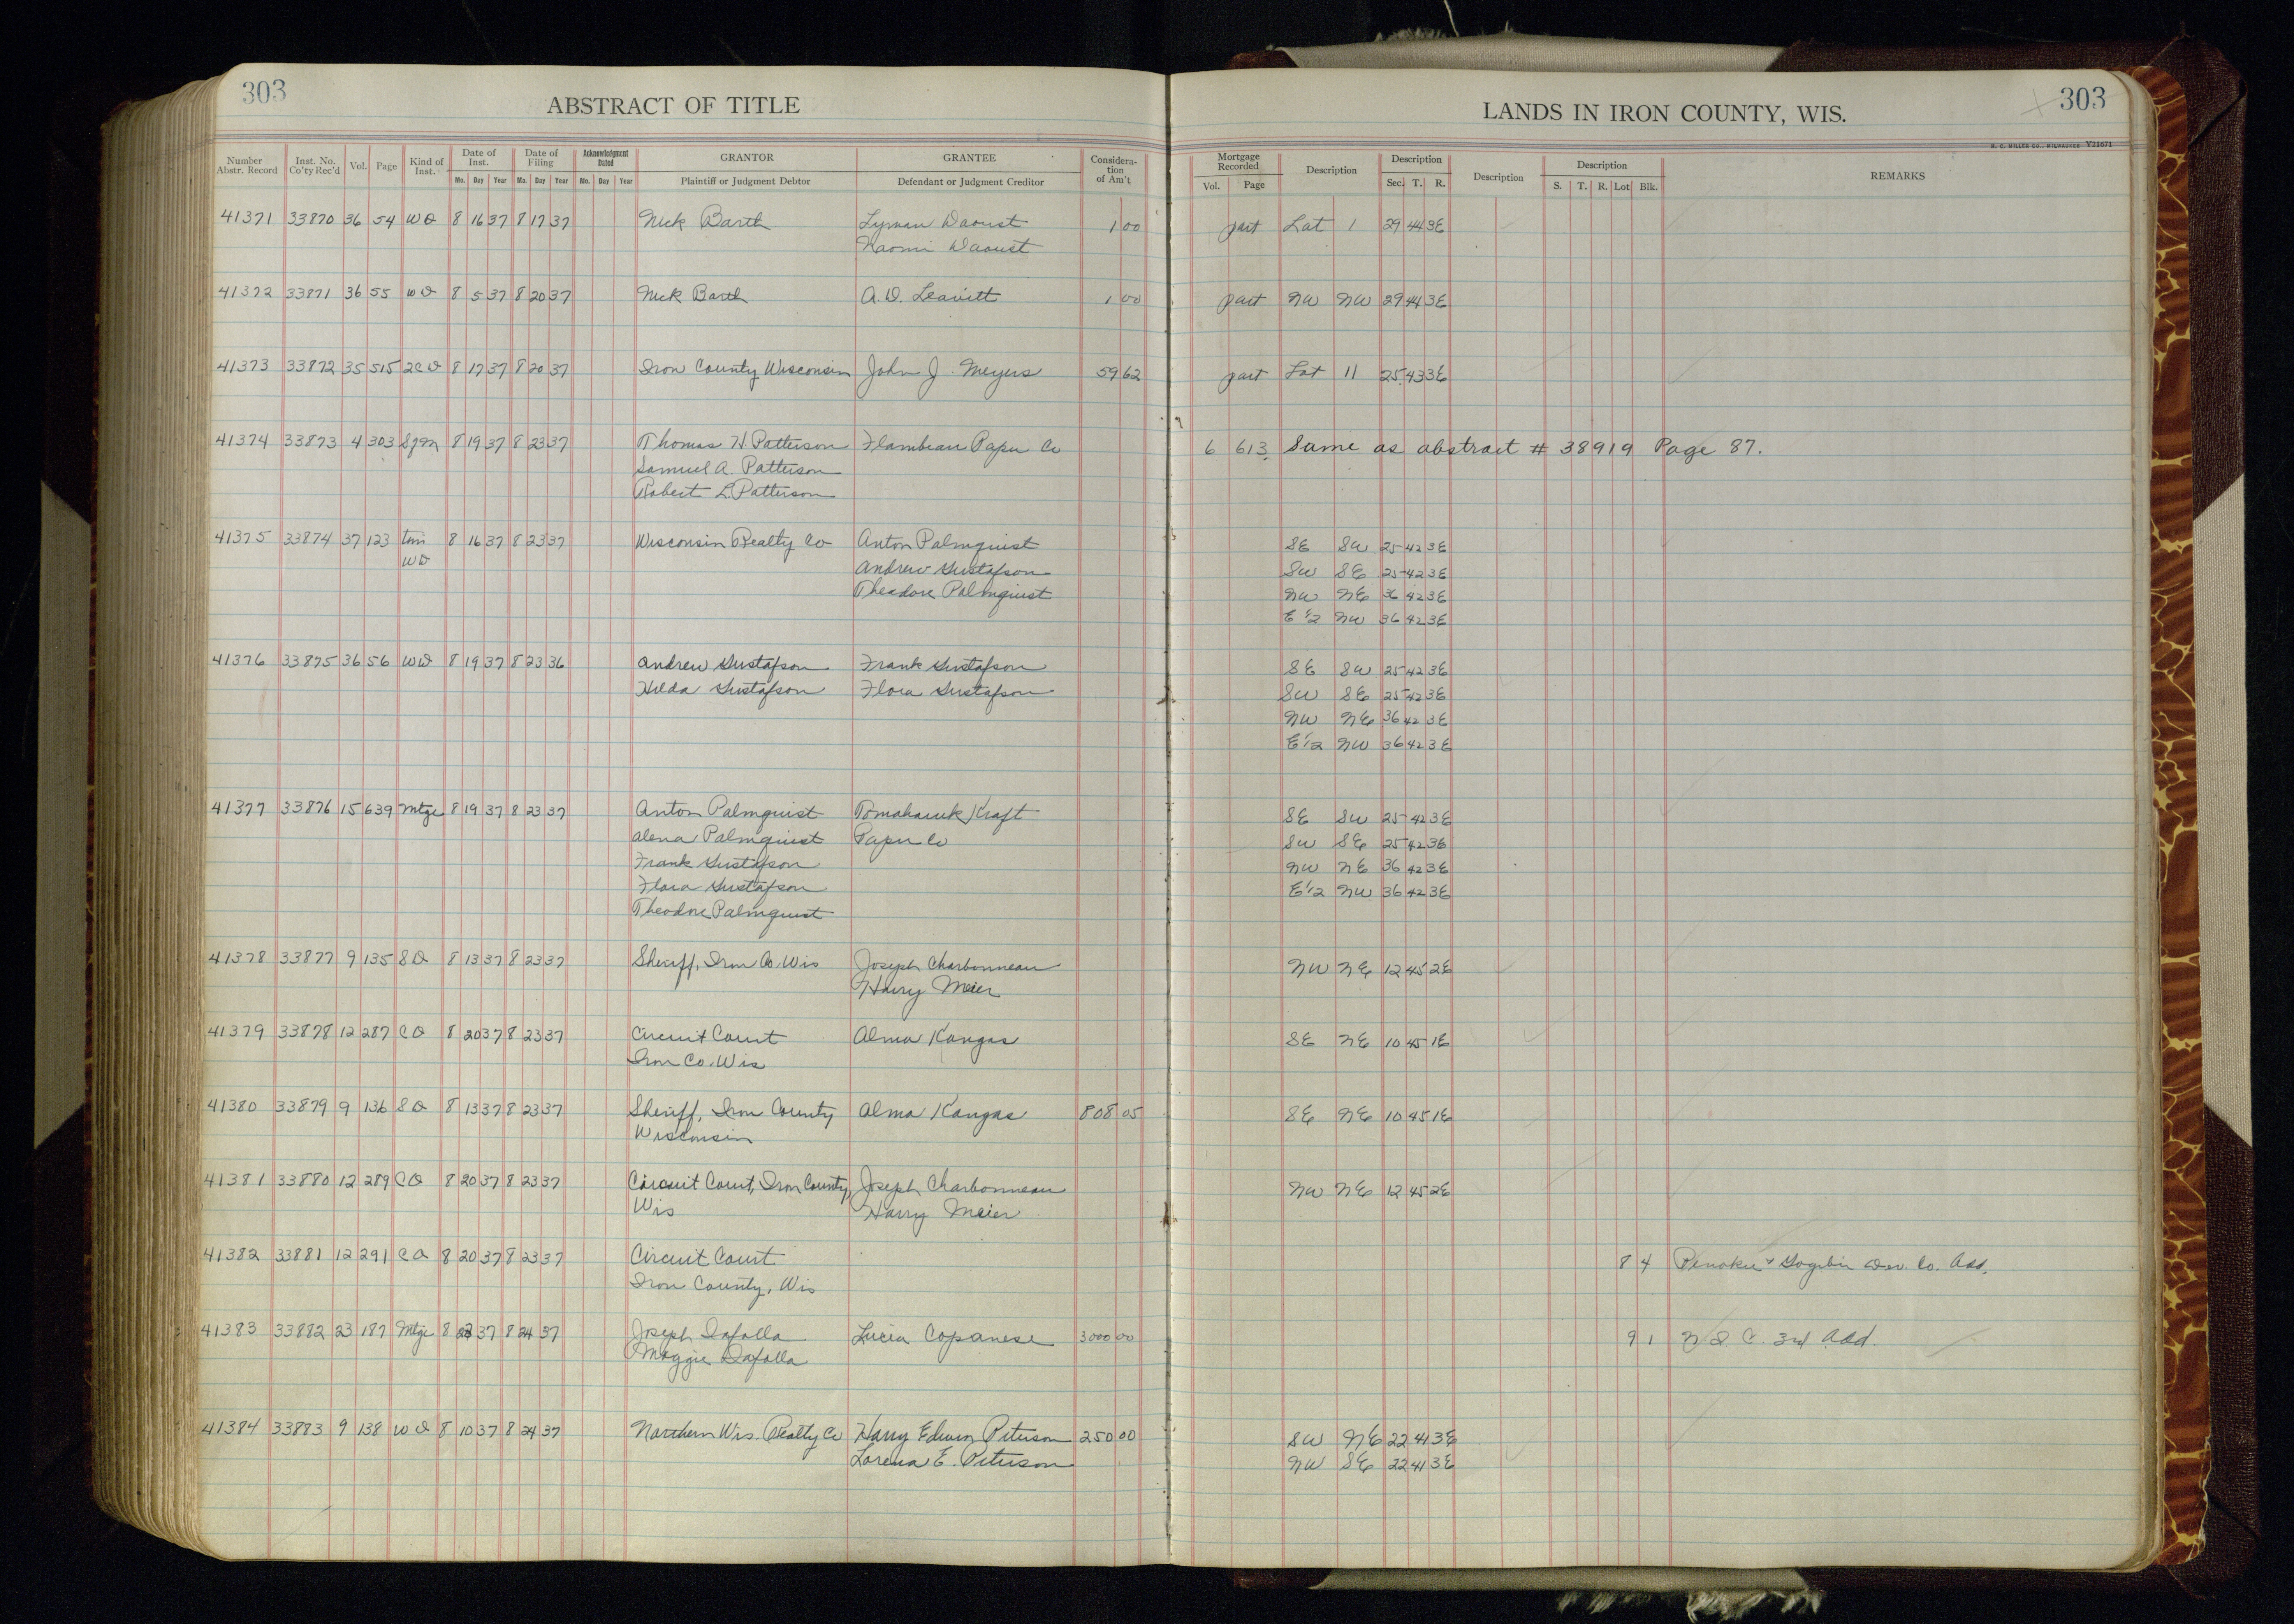 303
ABSTRACT OF TITLE
LANDS IN IRON COUNTY, WIS.
303
H. C. MILLER CO., MILWAUKEE V21671
Number Abstr. Record Inst. No. Co'ty Rec'd Vol. Page Kind of Inst. Date of Inst. Mo. Day Year Date of Filing Mo. Day Year Acknowledgment Dated Mo. Day Year GRANTOR Plaintiff or Judgment Debtor GRANTEE Defendant or Judgment Creditor Consideration of Am't Mortgage Recorded Vol. Page Description Description Sec. T. R. Description Description S. T. R. Lot Blk. REMARKS
41371 33870 36 54 WD 8 16 37 8 17 37 Nick Barth Lyman Daoust 1 00 part Lot 1 29 44 3E
Naomi Daoust
41372 33871 36 55 WD 8 5 37 8 20 37 Nick Barth A. D. Leavitt 1 00 part NW NW 29 44 3E
41373 33872 35 515 2CD 8 17 37 8 20 37 Iron County Wisconsin John J. Meyers 59 62 part Lot 11 25 43 3E
41374 33873 4 303 8 19 37 8 23 37 Thomas H. Patterson Flambeau Paper Co 6 613 Same as abstract # 38919 Page 87.
Samuel A. Patterson
Robert L. Patterson
41375 33874 37 123 WD 8 16 37 8 23 37 Wisconsin Realty Co Anton Palmquist SE SW 25 42 3E
Andrew Gustafson SW SE 25 42 3E
Theodore Palmquist NW NE 36 42 3E
E 1/2 NW 36 42 3E
41376 33875 36 56 WD 8 19 37 8 23 36 Andrew Gustafson Frank Gustafson SE SW 25 42 3E
Hilda Gustafson Flora Gustafson SW SE 25 42 3E
NW NE 36 42 3E
E 1/2 NW 36 42 3E
41377 33876 15 639 Mtge 8 19 37 8 23 37 Anton Palmquist Tomahawk Kraft SE SW 25 42 3E
Alena Palmquist Paper Co SW SE 25 42 3E
Frank Gustafson NW NE 36 42 3E
Flora Gustafson E 1/2 NW 36 42 3E
Theodore Palmquist
41378 33877 9 135 SD 8 13 37 8 23 37 Sheriff, Iron Co. Wis Joseph Charbonneau NW NE 12 45 2E
Harry Meier
41379 33878 12 287 CO 8 20 37 8 23 37 Circuit Court Alma Kangas SE NE 10 45 1E
Iron Co. Wis
41380 33879 9 136 SD 8 13 37 8 23 37 Sheriff, Iron County Alma Kangas 808 05 SE NE 10 45 1E
Wisconsin
41381 33880 12 289 CO 8 20 37 8 23 37 Circuit Court, Iron County, Joseph Charbonneau NW NE 12 45 2E
Wis Harry Meier
41382 33881 12 291 CO 8 20 37 8 23 37 Circuit Court 8 4 Penokee & Gogebic Dev. Co. Add.
Iron County, Wis
41383 33882 23 187 Mtge 8 37 8 24 37 Joseph Lucia Copanese 3000 00 9 1 3rd Add.
Maggie
41384 33883 9 138 WD 8 10 37 8 24 37 Northern Wis. Realty Co Harry Edwin Peterson 250 00 SW NE 22 41 3E
Lorena E. Peterson NW SE 22 41 3E